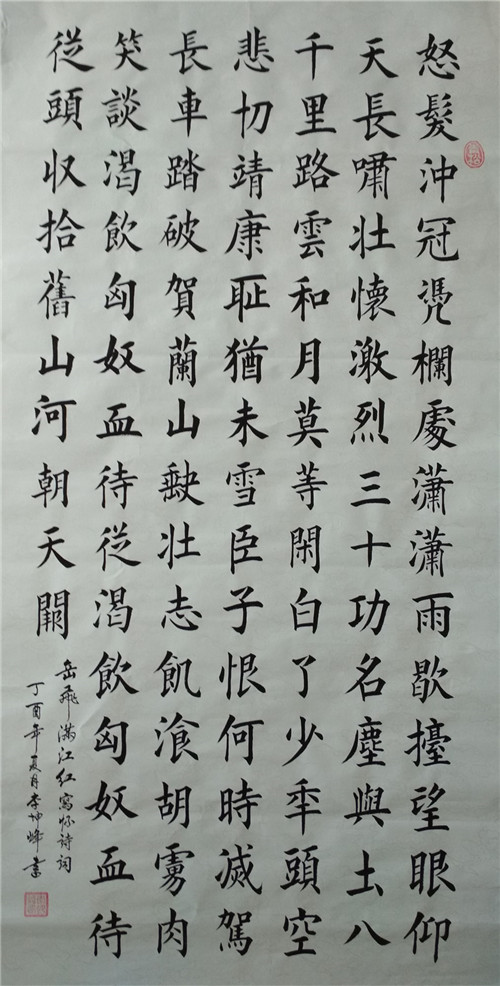 怒髮沖冠凴欄處瀟瀟雨歇擡望眼仰
天長嘯壯懷激烈三十功名塵與土八
千里路雲和月莫等閑白了少秊頭空
悲切靖康耻猶未雪臣子恨何時滅駕
長車踏破賀蘭山缺壯志飢湌胡虜肉
笑談渴飲匈奴血待從渴飲匈奴血待
從頭收拾舊山河朝天闕
岳飛满江红寫怀诗词
丁酉年夏月李坤峰書